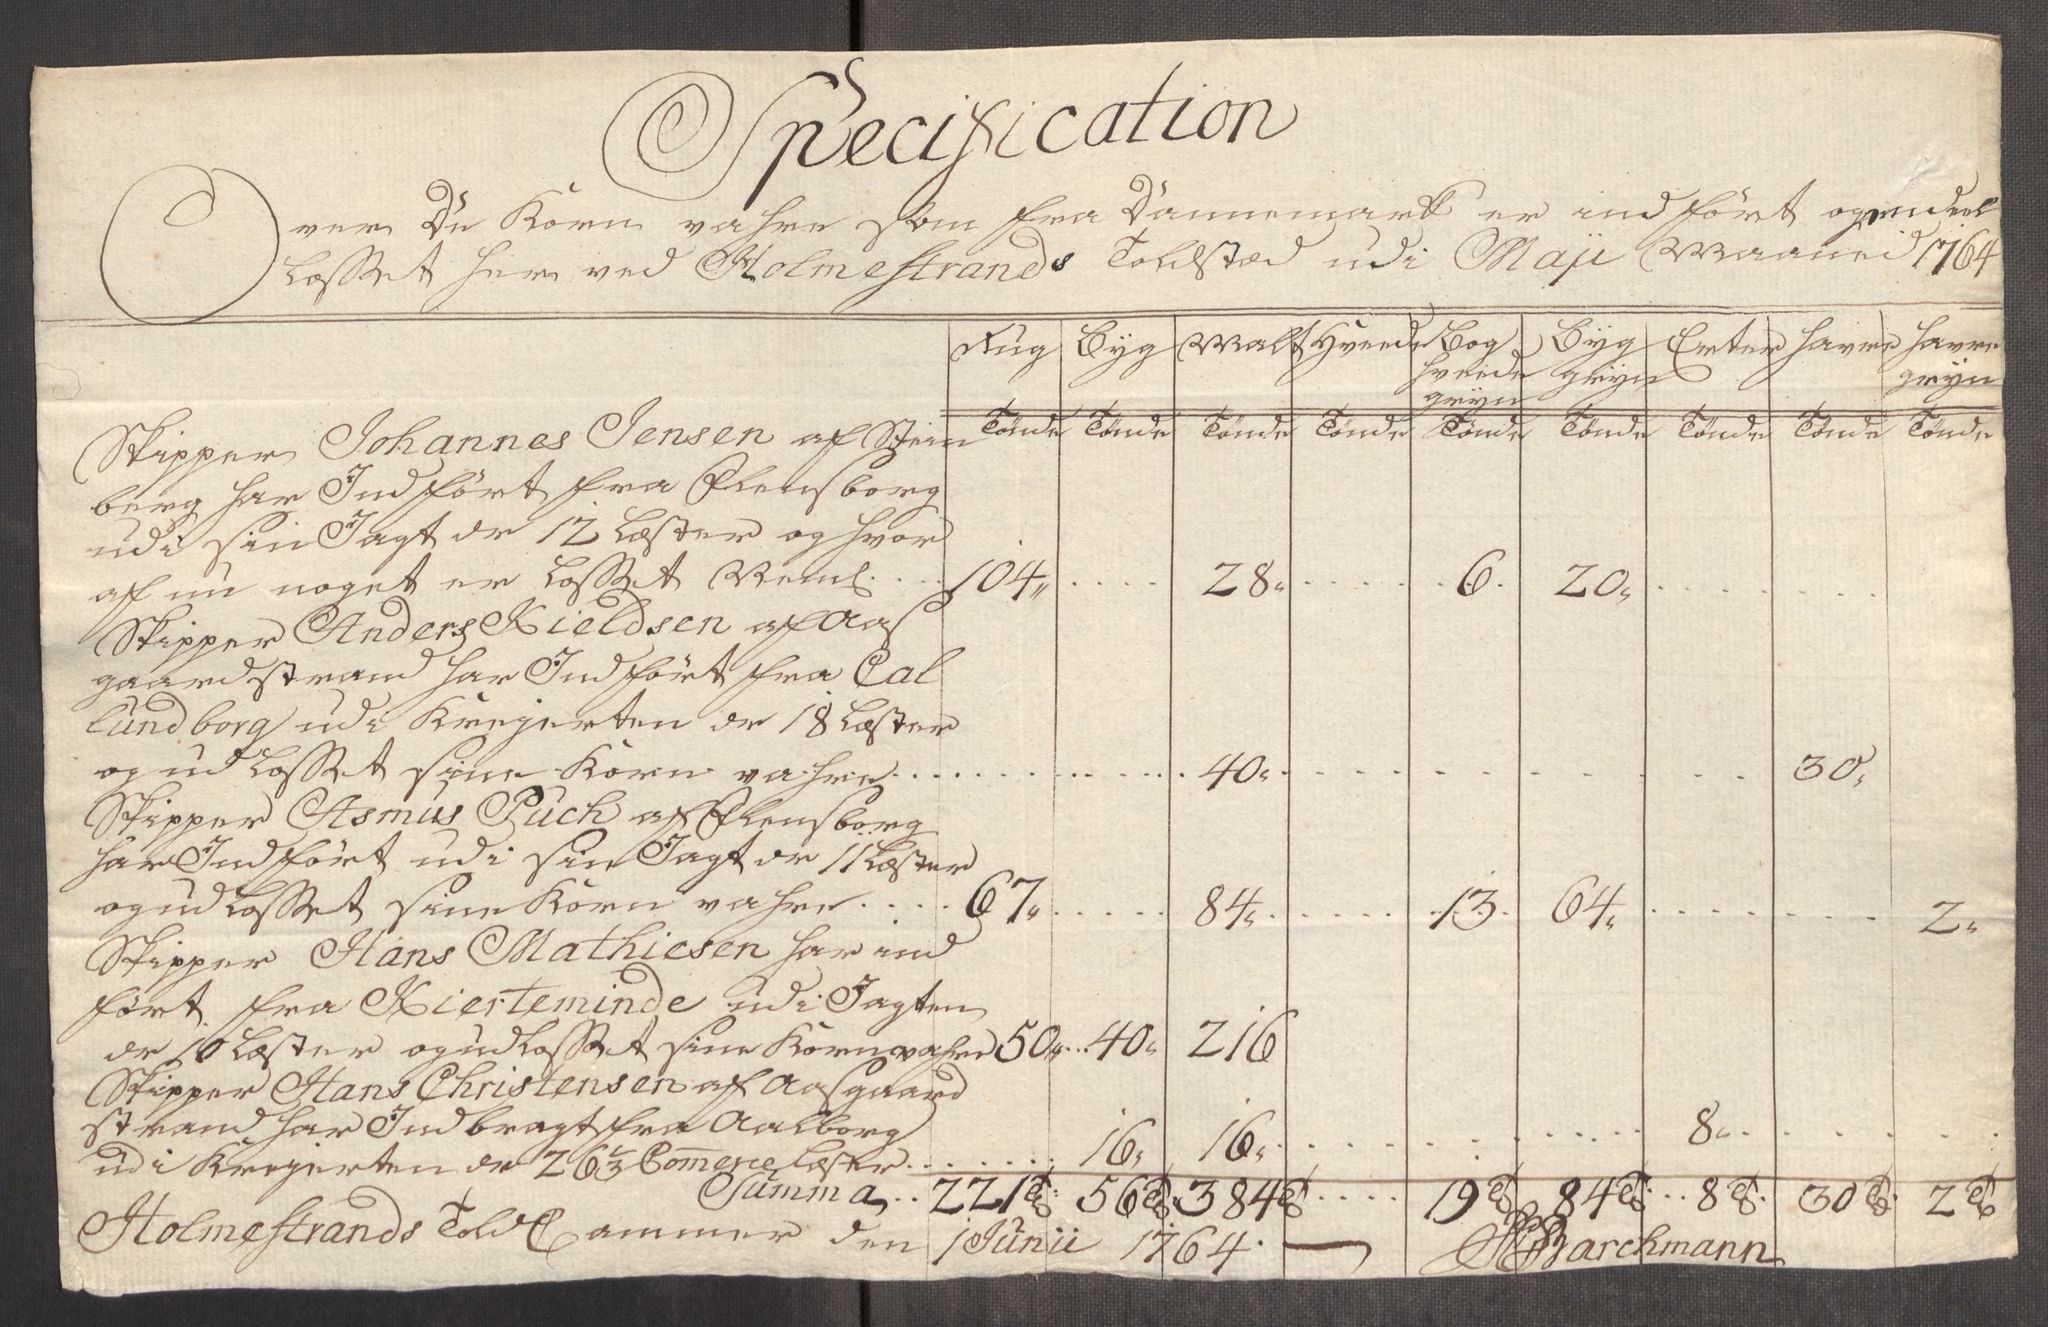 Specification
Over De Korn vahre som fra Dannemark er indført og endeel
Losset her ved Holmestrands Toldstæd udi Maji Maaned 1764
Rug Byg Malt Hveede Bog hveede gryn Byg gryn Erter Havre Havre gryn
Tønde Tønde Tønde Tønde Tønde Tønde Tønde Tønde Tønde
Skipper Johannes Jensen af Stein
berg har Indført fra Flensborg
udi sin Jagt dr 12 Læster og hvor
af nu noget er Losset Neml. 104 28 6 20
Skipper Anders Kieldsen af Aas
gaardstrand har Indført fra Cal
lundborg udi Krejerten dr 18 Læster
og udLosset sine Korn vahre 40 30
Skipper Asmus Puch af Flensborg
har Indført udi sin Jagt dr 11 Læster
og udLosset sine Korn vahre 67 84 13 64 2
Skipper Hans Mathiesen har ind
ført fra Kierteminde udi Jagten
dr 10 Læster og udLosset sine Korn vahre 50 40 216
Skipper Hans Christensen af Aasgaard
strand har Indbragt fra Aalborg
udi Krejerten dr 26 1/3 Commerce Læster 16 16 8
Summa 221 T 56 T 384 T 19 T 84 T 8 T 30 T 2 T
Holmestrands Told Cammer den 1 Junii 1764. Barchmann